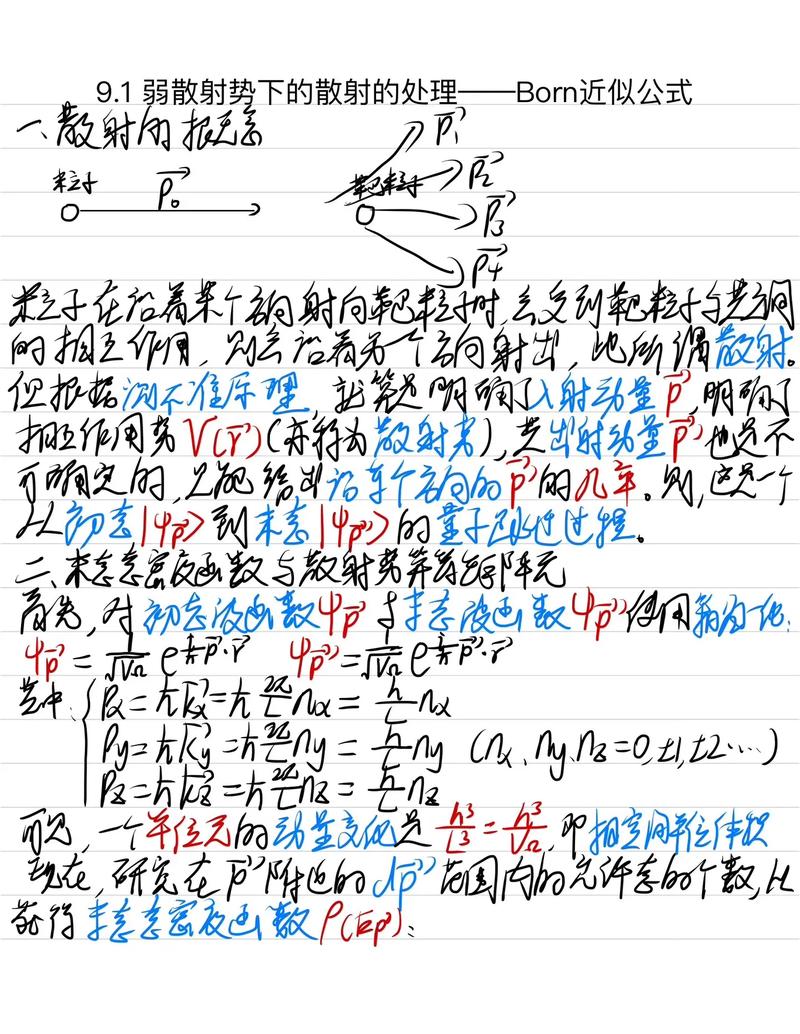 9.1 弱散射势下的散射的处理——Born近似公式
一、散射的概念
粒子 p⃗₀ 靶粒子 p⃗₁ p⃗₂ p⃗₃ p⃗₄
粒子在沿着某个方向射向靶粒子时,会受到靶粒子与其之间
的相互作用,则会沿着另一个方向射出,此所谓散射。
但根据测不准原理,就算是明确了入射动量p⃗,明确了
相互作用势V(r⃗)(亦称为散射势),其出射动量p⃗'也是不
可确定的,只能给出沿每个方向的p⃗'的几率。则,这是一个
从初态|ψp⃗>到末态|ψp⃗'>的量子跃迁过程。
二、末态态密度函数与散射势算符矩阵元
首先,对初态波函数ψp⃗与末态波函数ψp⃗'使用箱归一化:
ψp⃗ = 1/√VΩ e^(i/ħ p⃗·r⃗) ψp⃗' = 1/√VΩ e^(i/ħ p⃗'·r⃗)
其中: { Px = ħkx = ħ 2π/L nx = h/L nx
Py = ħky = ħ 2π/L ny = h/L ny (nx、ny、nz = 0,±1,±2……)
Pz = ħkz = ħ 2π/L nz = h/L nz
可见,一个单位元的动量变化是 h³/L³ = h³/VΩ,即相空间单位体积
现在,研究在p⃗'附近的dp⃗'范围内的允许态的个数,以
获得末态态密度函数ρ(Ep'):